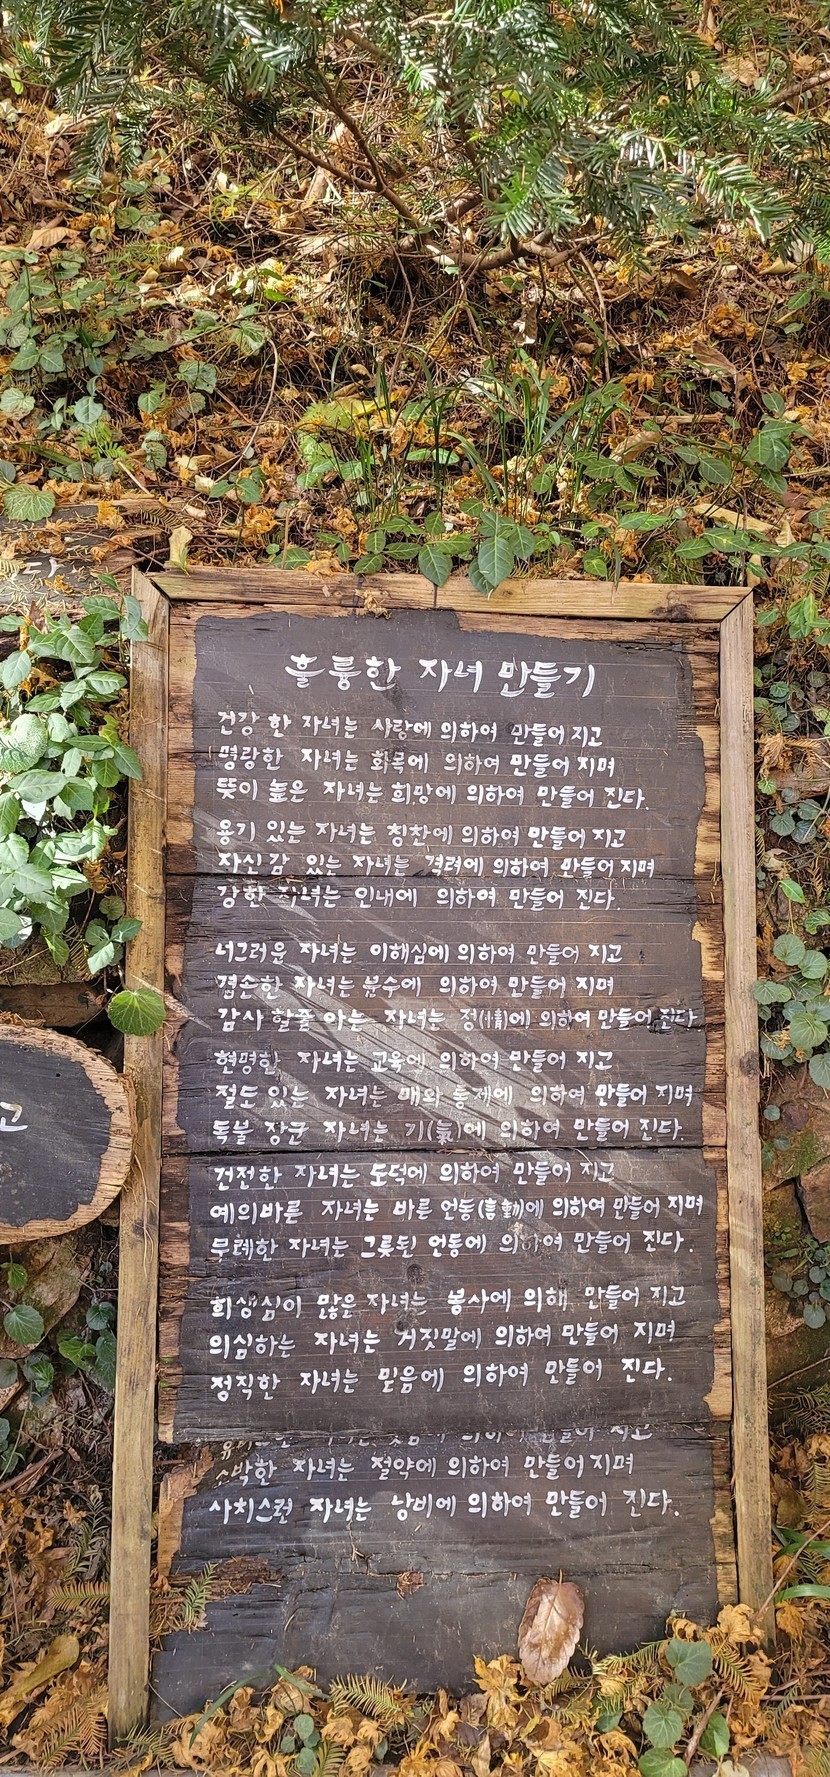 훌륭한 자녀 만들기
건강 한 자녀는 사랑에 의하여 만들어 지고
명랑한 자녀는 화목에 의하여 만들어 지며
뜻이 높은 자녀는 희망에 의하여 만들어 진다.
용기 있는 자녀는 칭찬에 의하여 만들어 지고
자신감 있는 자녀는 격려에 의하여 만들어 지며
강한 자녀는 인내에 의하여 만들어 진다.
너그러운 자녀는 이해심에 의하여 만들어 지고
겸손한 자녀는 분수에 의하여 만들어 지며
감사 할줄 아는 자녀는 정(情)에 의하여 만들어 진다.
현명한 자녀는 교육에 의하여 만들어 지고
절도 있는 자녀는 매와 통제에 의하여 만들어 지며
독불 장군 자녀는 기(氣)에 의하여 만들어 진다.
건전한 자녀는 도덕에 의하여 만들어 지고
예의바른 자녀는 바른 언동(言動)에 의하여 만들어 지며
무례한 자녀는 그릇된 언동에 의하여 만들어 진다.
희생심이 많은 자녀는 봉사에 의해 만들어 지고
의심하는 자녀는 거짓말에 의하여 만들어 지며
정직한 자녀는 믿음에 의하여 만들어 진다.
의하여 만들어 지고
소박한 자녀는 절약에 의하여 만들어 지며
사치스런 자녀는 낭비에 의하여 만들어 진다.
다
고